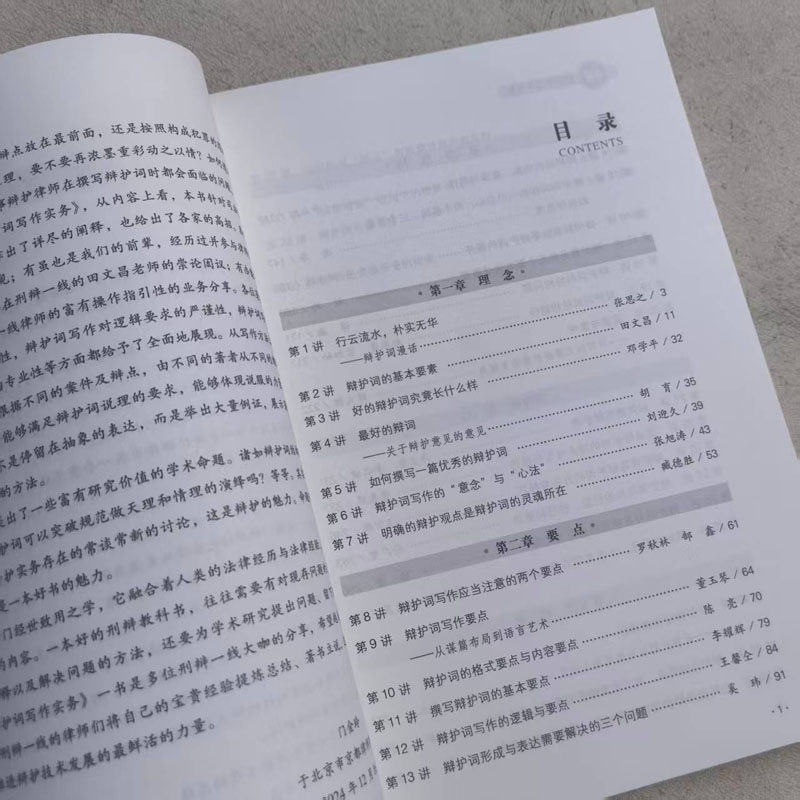 辩点放在最前面，还是按照构成犯罪的
理，要不要再浓墨重彩动之以情？如何
事辩护律师在撰写辩护词时都会面临的问题
词写作实务》，从内容上看，本书针对司
作出了详尽的阐释，也给出了各家的高招、
现；有虽也是我们的前辈，经历过并参与
在刑辩一线的田文昌老师的崇论闳议；有
一线律师的富有操作指引性的业务分享。各位
性，辩护词写作对逻辑要求的严谨性，辩护
的专业性等方面都给予了全面地展现。从写作方法
根据不同的案件及辩点，由不同的著者从不同的
能够满足辩护词说理的要求，能够体现说服的力
不是停留在抽象的表达，而是举出大量例证，展
的方法。
提出了一些富有研究价值的学术命题。诸如辩护词
护词可以突破规范做天理和情理的演绎吗？等等，
护实务存在的常谈常新的讨论，这是辩护的魅力，
是一本好书的魅力。
门经世致用之学，它融合着人类的法律经历与法律
的内容。一本好的刑辩教科书，往往需要有对现存问题
释以及解决问题的方法，还要为学术研究提出问题、
护词写作实务》一书是多位刑辩一线大咖的分享，希望
刑辩一线的律师们将自己的宝贵经验提炼总结、著书立
促进辩护技术发展的最鲜活的力量。
门金玲
于北京市京都律
2024年12月
目 录
CONTENTS
第一章 理 念
第1讲 行云流水，朴实无华
——辩护词漫话 张思之/3
第2讲 辩护词的基本要素 田文昌/11
第3讲 好的辩护词究竟长什么样 邓学平/32
第4讲 最好的辩词
——关于辩护意见的意见 胡 育/35
第5讲 如何撰写一篇优秀的辩护词 刘逊久/39
第6讲 辩护词写作的“意念”与“心法” 张旭涛/43
第7讲 明确的辩护观点是辩护词的灵魂所在 臧德胜/53
第二章 要 点
第8讲 辩护词写作应当注意的两个要点 罗秋林 郜 鑫/61
第9讲 辩护词写作要点
——从谋篇布局到语言艺术 董玉琴/64
第10讲 辩护词的格式要点与内容要点 陈 亮/70
第11讲 撰写辩护词的基本要点 李耀辉/79
第12讲 辩护词写作的逻辑与要点 王馨仝/84
第13讲 辩护词形成与表达需要解决的三个问题 奚 玮/91
·1·